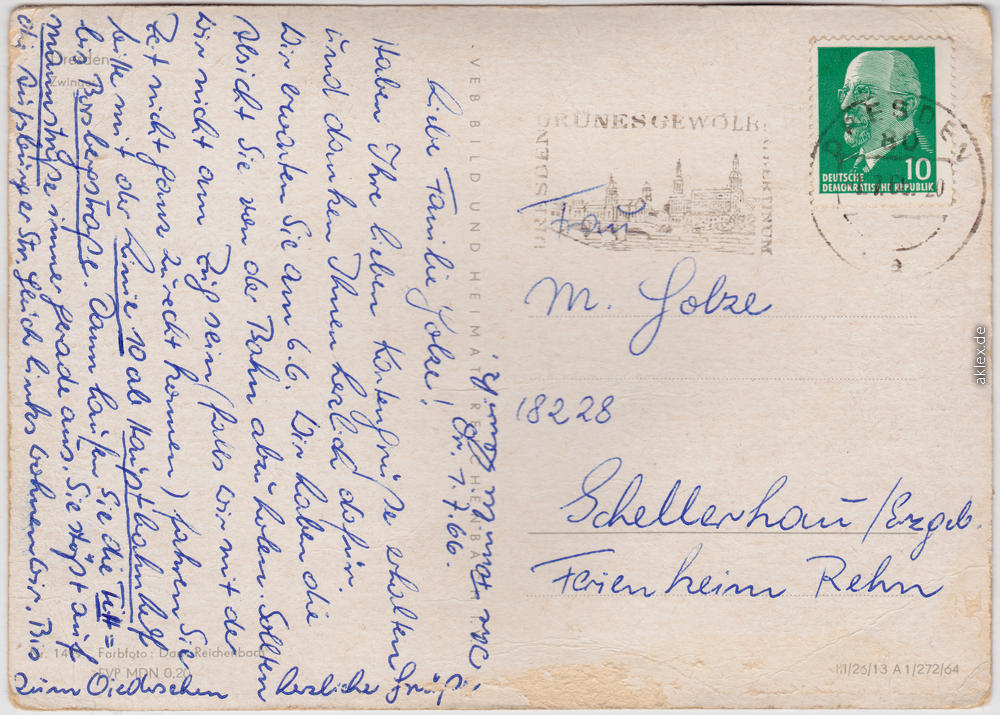 Dresden
Zwinger
VEB BILD UND HEIMAT REICHENBACH
Dr. 1.7.66.
Liebe Familie Golze!
Haben Ihre lieben Kartengrüße erhalten
und danken Ihnen herzlich dafür.
Wir erwarten Sie am 6.6. Wir haben die
Absicht Sie von der Bahn abzuholen. Sollten
wir nicht am Zug sein (falls wir mit der
Zeit nicht ganz zurecht kommen) fahren Sie
bitte mit der Linie 10 ab Hauptbahnhof
bis Borsbergstraße. Dann laufen Sie die Titt=
mannstraße immer gerade aus. Sie stößt auf
die Augsburger Str. gleich links wohnen wir. Bis
zum Wiedersehen herzliche Grüße
Farbfoto: Darr, Reichenbach
EVP MDN 0,20
III/26/13 A 1/272/64
DRESDEN
GRÜNES GEWÖLBE
ALBERTINUM
DRESDEN
80
20
a
10
DEUTSCHE
DEMOKRATISCHE REPUBLIK
Frau
M. Golze
18228
Schellerhau/Erzgeb.
Ferienheim Rehn
aklex.de